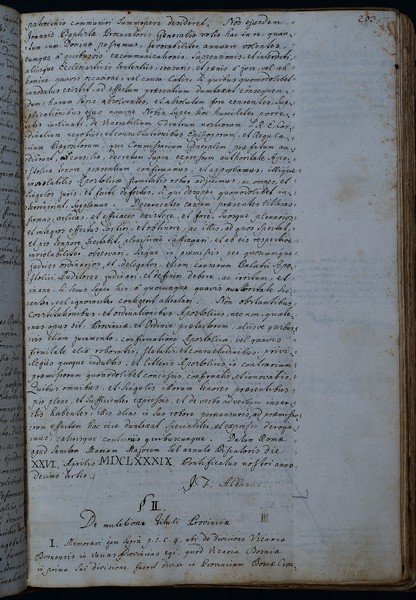 203
patrocinio communiri summopere desideret. Nos ejusdem
Joannis Baptistæ Procuratoris Generalis votis hac in re, quan-
tum cum Domino possumus, favorabiliter annuere volentes,
eumque a quibusvis excommunicationis, suspensionis, et interdicti,
aliisque Ecclesiasticis sententiis, censuris, et pœnis a jure, vel ab
homine quavis occasione, vel causa latis, si quibus quomodolibet
innodatus existit, ad effectum præsentium dumtaxat consequen-
dum, harum serie absolventes, et absolutum fore censentes, sup-
plicationibus ejus nomine Nobis super hoc humiliter porre-
ctis inclinati, de Venerabilium Fratrum nostrorum S. R. E. Car-
dinalium negotiis, et consultationibus Episcoporum, et Regula-
rium Præpositorum, qui Commissarium Generalem præfatum au-
dierunt, consilio, decretum supra expressum authoritate Apo-
stolica tenore præsentium confirmamus, et approbamus, illique
inviolabilis Apostolicæ firmitatis robur adjicimus, ac omnes, et
singulos juris, et facti defectus, si qui desuper quomodolibet in-
tervenerint supplemus. Decernentes easdem præsentes litteras
firmas, validas, et efficaces existere, et fore, suosque plenarios,
et integros effectus sortiri, et obtinere, ac illis, ad quos spectat,
et pro tempore spectabit, plenissime suffragari, et ab eis respective
inviolabiliter observari, sicque in præmissis per quoscumque
judices ordinarios, et delegatos, etiam causarum Palatii Apo-
stolici Auditores judicari, et definiri debere, ac irritum, et
inane, si secus super his a quoquam quavis authoritate sci-
enter, vel ignoranter contigerit attentari. Non obstantibus
Constitutionibus, et ordinationibus Apostolicis, nec non, quate-
nus opus sit, Provinciæ, et Ordinis prædictorum, aliisve quibus-
vis etiam juramento, confirmatione Apostolica, vel quavis
firmitate alia roboratis, statutis, et consuetudinibus, privi-
legiis quoque indultis, et litteris Apostolicis in contrarium
præmissorum quomodolibet concessis, confirmatis, et innovatis.
Quibus omnibus, et singulis illorum tenores præsentibus
pro plene, et sufficienter expressis, et de verbo ad verbum inser-
tis habentes, illis alias in suo robore permansuris, ad præmisso-
rum effectum hac vice dumtaxat specialiter, et expresse deroga-
mus, cæterisque contrariis quibuscumque. Datum Romæ
apud Sanctam Mariam Majorem sub annulo Piscatoris die
XXVI. Aprilis MDCLXXXIX. Pontificatus nostri anno
decimo tertio.
J. F. Albanus
§ II.
De mutatione tituli Provinciæ
I. Memorari jam supra p. 1. c. 9. ubi de divisione Vicariæ
Bosnensis in varias Provincias egi, quod Vicaria Bosnia
in prima sui divisione fuerit divisa in Provinciam Bosnæ Croa-